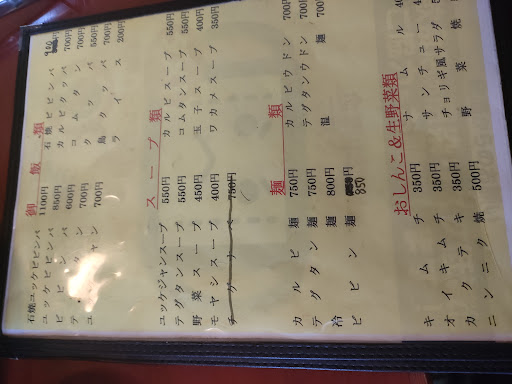 御飯類
石焼ユッケビビンバ 1100円 石焼ビビンバ 900
ユッケビビンバ 800円 カルビクッパ 700円
ビビンバ 600円 コムタン 700円
テグタン 700円 クッパ 550円
ユッケジャン 700円 鳥クッパ 700円
ライス 200円
スープ類
ユッケジャンスープ 550円 カルビスープ 550円
テグタンスープ 550円 コムタンスープ 500円
野菜スープ 450円 玉子スープ 400円
モヤシスープ 400円 ワカメスープ 350円
750円
麺類
カルビ麺 750円 カルビウドン 700円
テグタン麺 750円 テグタンウドン 700円
冷麺 800円 温麺 700円
ビビン麺 850
おしんこ&生野菜類
キムチ 350円 ナムル
オイキムチ 350円 サンチュー
カクテキ 350円 チョリギ風サラダ
ニンニク焼 500円 野菜焼